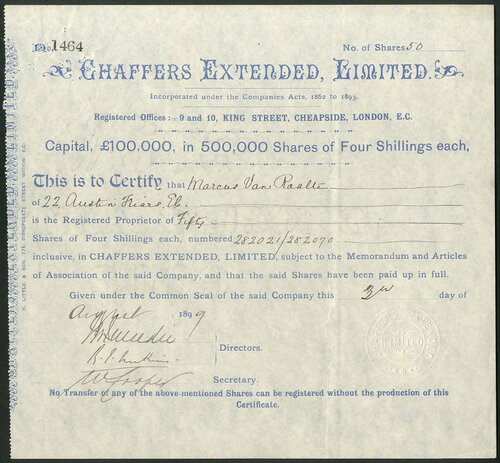 No. 1464
No. of Shares 50
CHAFFERS EXTENDED, LIMITED.
Incorporated under the Companies Acts, 1862 to 1893.
Registered Offices:- 9 and 10, KING STREET, CHEAPSIDE, LONDON, E.C.
Capital, £100,000, in 500,000 Shares of Four Shillings each,
This is to Certify that Marcus Van Raalte
of 22, Austin Friars, E.C.
is the Registered Proprietor of Fifty
Shares of Four Shillings each, numbered 282021/282070
inclusive, in CHAFFERS EXTENDED, LIMITED, subject to the Memorandum and Articles
of Association of the said Company, and that the said Shares have been paid up in full.
Given under the Common Seal of the said Company this 3rd day of
August 1899
Directors.
W Cooper
Secretary.
No Transfer of any of the above-mentioned Shares can be registered without the production of this
Certificate.
CHAFFERS EXTENDED
LIMITED